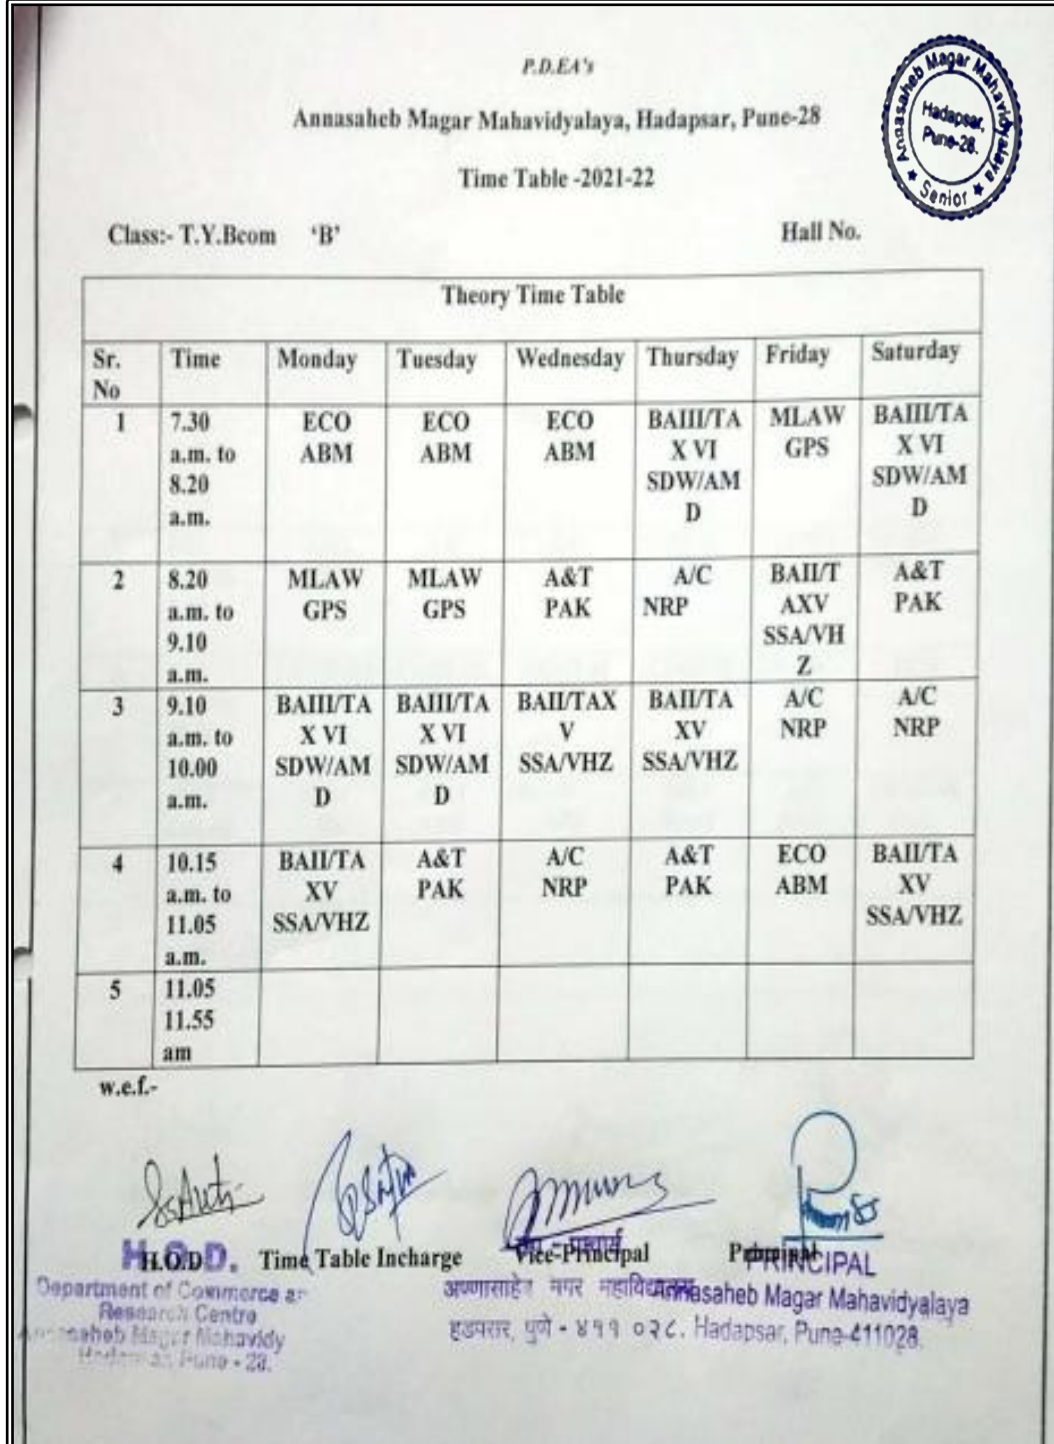 P.D.EA's
Annasaheb Magar Mahavidyalaya, Hadapsar, Pune-28
Time Table -2021-22
Annasaheb Magar Mahavidyalaya
Hadapsar,
Pune-28.
★ Senior ★
Class:- T.Y.Bcom 'B' Hall No.
Theory Time Table
Sr. No Time Monday Tuesday Wednesday Thursday Friday Saturday
1 7.30 a.m. to 8.20 a.m. ECO ABM ECO ABM ECO ABM BAIII/TA X VI SDW/AM D MLAW GPS BAIII/TA X VI SDW/AM D
2 8.20 a.m. to 9.10 a.m. MLAW GPS MLAW GPS A&T PAK A/C NRP BAII/T AXV SSA/VH Z A&T PAK
3 9.10 a.m. to 10.00 a.m. BAIII/TA X VI SDW/AM D BAIII/TA X VI SDW/AM D BAII/TAX V SSA/VHZ BAII/TA XV SSA/VHZ A/C NRP A/C NRP
4 10.15 a.m. to 11.05 a.m. BAII/TA XV SSA/VHZ A&T PAK A/C NRP A&T PAK ECO ABM BAII/TA XV SSA/VHZ
5 11.05 11.55 am
w.e.f.-
H.O.D Time Table Incharge Vice-Principal Principal
H.O.D.
Department of Commerce
Research Centre
Pune - 28.
महाविद्यालय
हडपसर, पुणे - ४११ ०२८.
PRINCIPAL
Annasaheb Magar Mahavidyalaya
Hadapsar, Pune-411028.